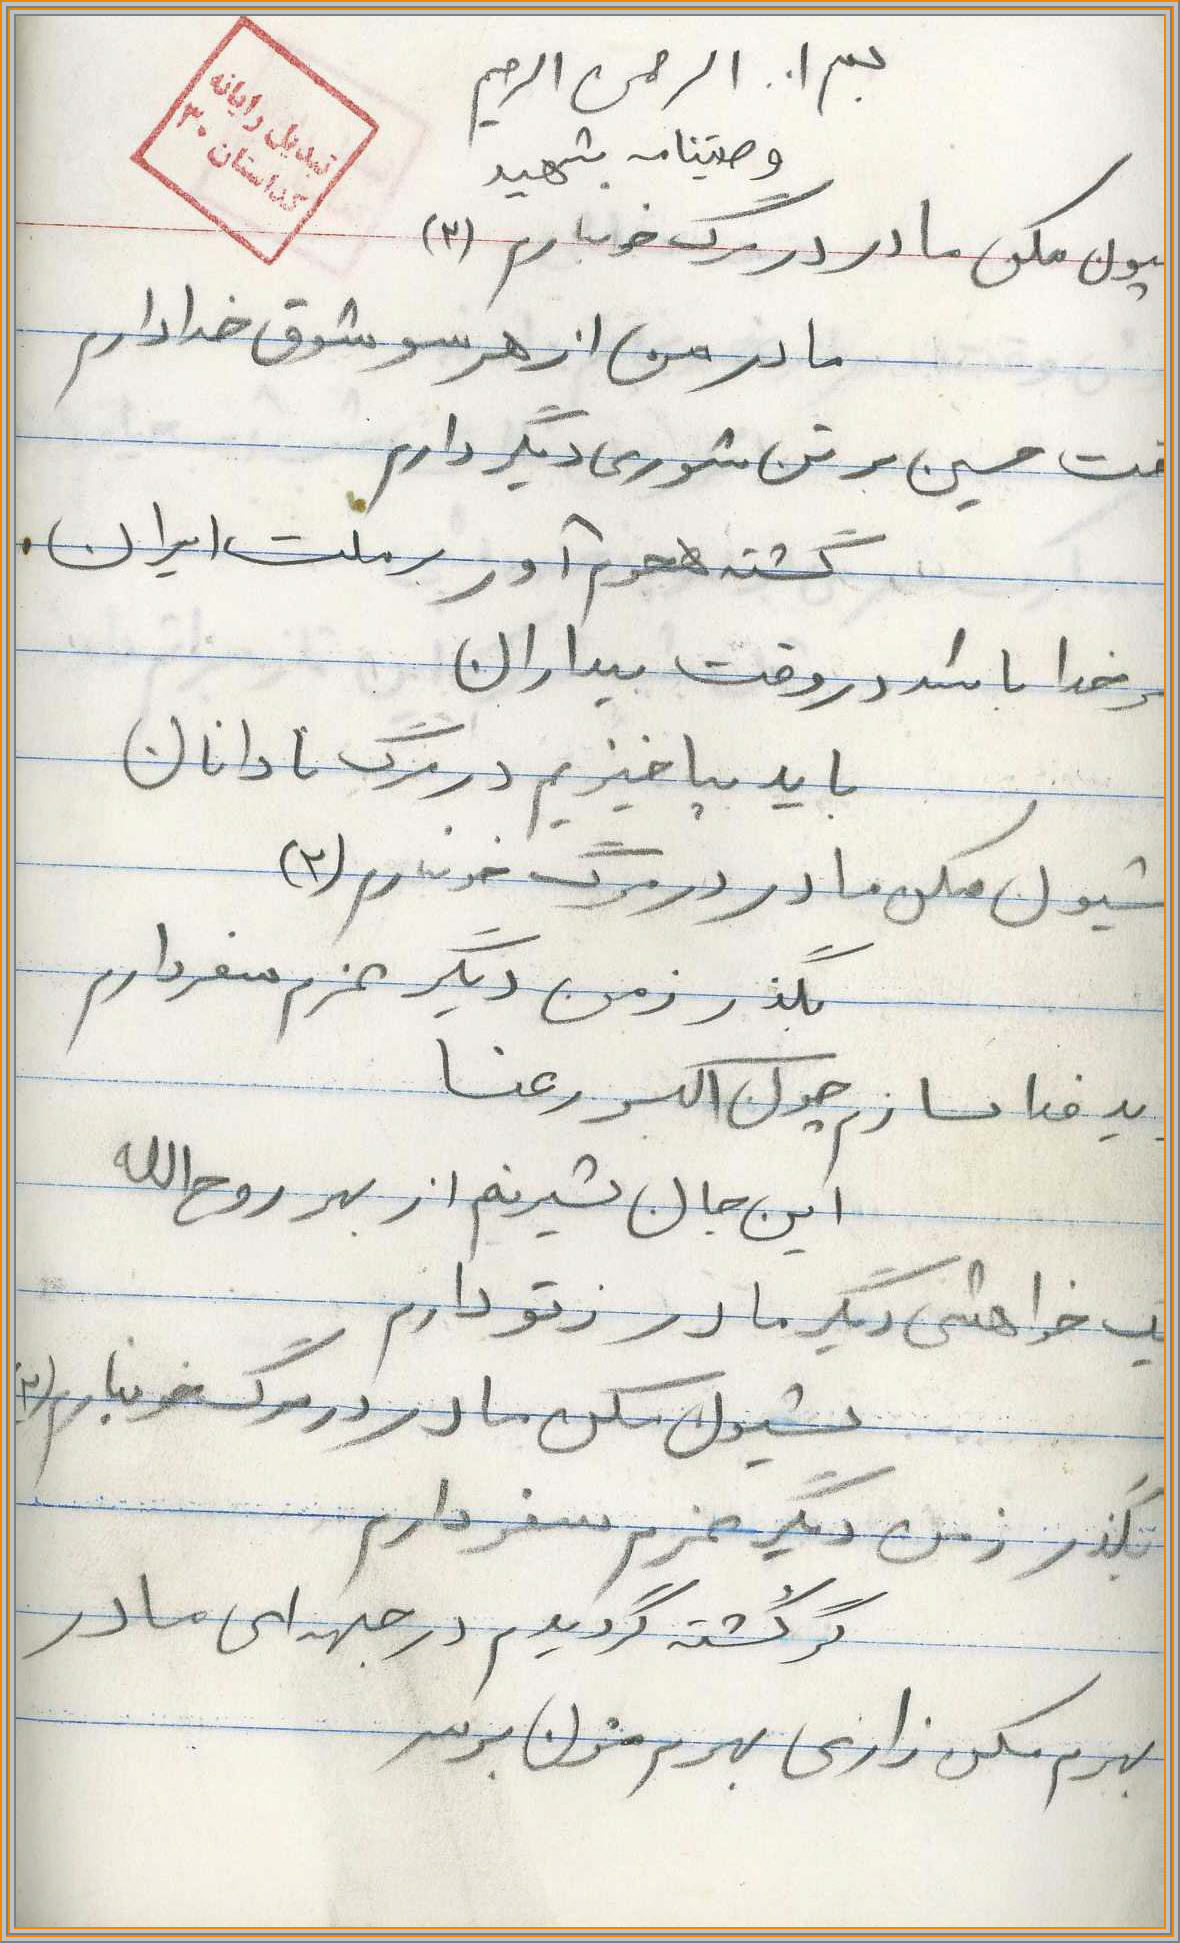 تبدیل رایانه
کداستان ۳۰
بسم ا.. الرحمن الرحیم
وصیتنامه شهید
شیون مکن مادر در مرگ خونبارم (۲)
مادر من از هر سو شوق خدا دارم
حسین بر تن شوری دیگر دارم
گشته هجوم آور بر ملت ایران.
خدا باشد در وقت بیداران
باید بپاخیزیم در مرگ نادانان
شیون مکن مادر در مرگ خونبارم (۲)
بگذر ز من دیگر عزم سفر دارم
فدا سازم چون اکبر رعنا
این جان شیرینم از بهر روح الله
یک خواهشی دیگر مادر ز تو دارم
شیون مکن مادر در مرگ خونبارم (۲)
بگذر ز من دیگر عزم سفر دارم
گر کُشته گردیدم در جبهه ای مادر
بهرم مکن زاری بهرم مزن بر سر